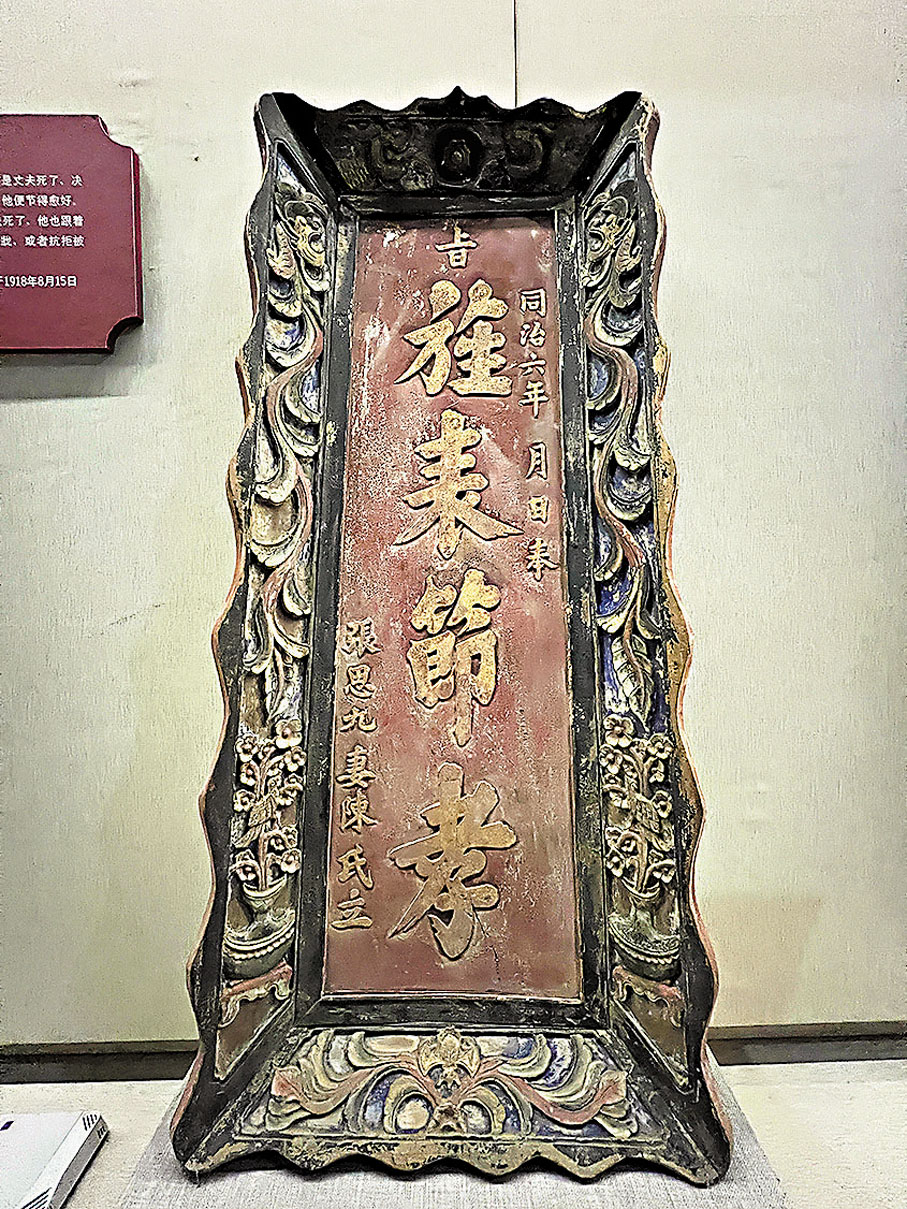 是丈夫死了、决
他便节得愈好。
死了、他也跟着
戕、或者抗拒被
1918年8月15日
同治六年 月 日奉
旨旌表節孝
張思九妻陳氏立